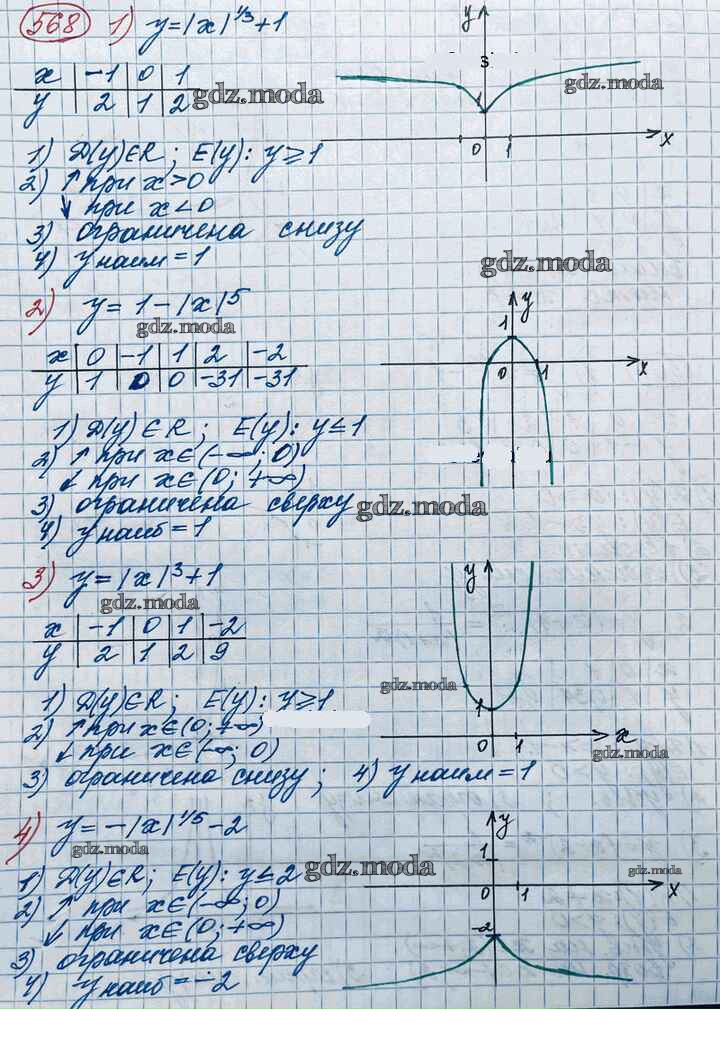 568 1) y=|x|^1/3+1
x | -1 | 0 | 1
y | 2 | 1 | 2
gdz.moda
y
3
1
0 1 x
gdz.moda
1) D(y)∈R; E(y): y≥1
2) ↑ при x>0
↓ при x<0
3) ограничена снизу
4) y наим = 1
gdz.moda
2) y = 1-|x|^5
gdz.moda
x | 0 | -1 | 1 | 2 | -2
y | 1 | 0 | 0 | -31 | -31
y
1
0 1 x
1) D(y)∈R; E(y): y≤1
2) ↑ при x∈(-∞; 0)
↓ при x∈(0; +∞)
3) ограничена сверху
gdz.moda
4) y наиб = 1
3) y=|x|^3+1
gdz.moda
x | -1 | 0 | 1 | -2
y | 2 | 1 | 2 | 9
y
1
0 1 x
gdz.moda
gdz.moda
1) D(y)∈R; E(y): y≥1
2) ↑ при x∈(0; +∞)
↓ при x∈(-∞; 0)
3) ограничена снизу; 4) y наим = 1
4) y=-|x|^1/5-2
gdz.moda
gdz.moda
y
1
0 1 x
-2
gdz.moda
1) D(y)∈R; E(y): y≤2
2) ↑ при x∈(-∞; 0)
↓ при x∈(0; +∞)
3) ограничена сверху
4) y наиб = -2